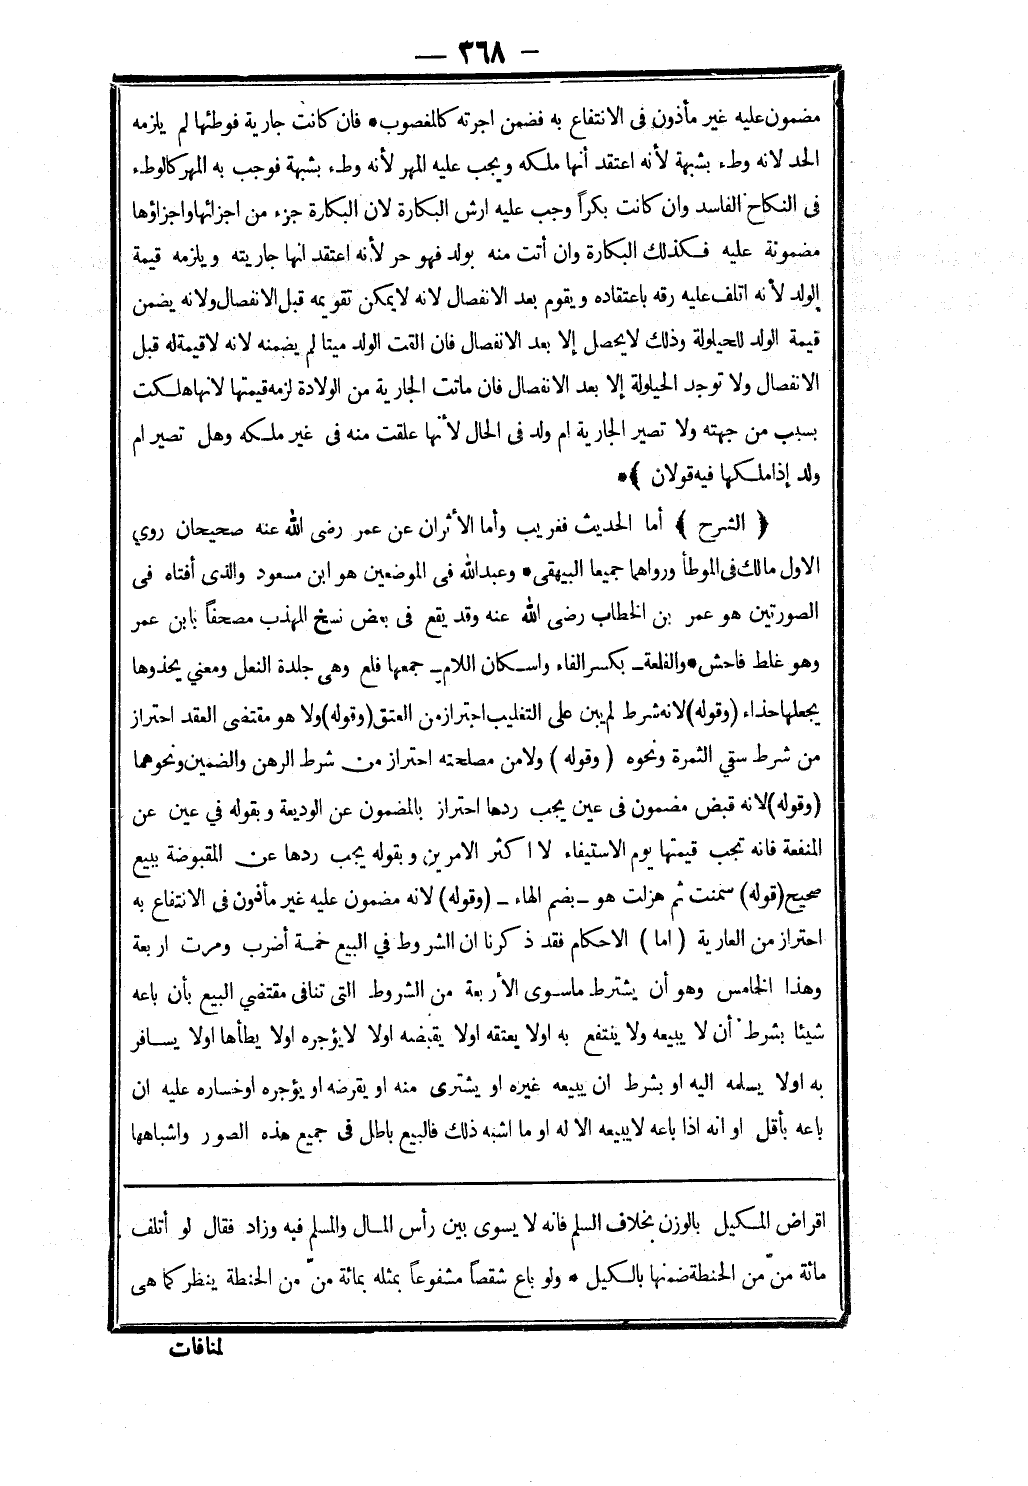 – ٣٦٨ —
مضمون عليه غير مأذون فى الانتفاع به فضمن اجرته كالمغصوب * فان كانت جارية فوطئها لم يلزمه
الحد لانه وطء بشبهة لأنه اعتقد أنها ملكه ويجب عليه المهر لأنه وطء بشبهة فوجب به المهر كالوطء
فى النكاح الفاسد وان كانت بكراً وجب عليه ارش البكارة لان البكارة جزء من اجزائها واجزاؤها
مضمونة عليه فكذلك البكارة وان أتت منه بولد فهو حر لأنه اعتقد انها جاريته ويلزمه قيمة
الولد لأنه اتلف عليه رقه باعتقاده ويقوم بعد الانفصال لانه لايمكن تقويمه قبل الانفصال ولانه يضمن
قيمة الولد للحيلولة وذلك لايحصل إلا بعد الانفصال فان القت الولد ميتا لم يضمنه لانه لاقيمة له قبل
الانفصال ولا توجد الحيلولة إلا بعد الانفصال فان ماتت الجارية من الولادة لزمه قيمتها لانها هلكت
بسبب من جهته ولا تصير الجارية ام ولد فى الحال لأنها علقت منه فى غير ملكه وهل تصير ام
ولد إذا ملكها فيه قولان ﴾ *
﴿ الشرح ﴾ أما الحديث فغريب وأما الأثران عن عمر رضى الله عنه صحيحان روي
الاول مالك فى الموطأ ورواهما جميعا البيهقى * وعبد الله فى الموضعين هو ابن مسعود والذى أفتاه فى
الصورتين هو عمر بن الخطاب رضى الله عنه وقد يقع فى بعض نسخ المهذب مصحفاً بابن عمر
وهو غلط فاحش * والفلعة ـ بكسر الفاء واسكان اللام ـ جمعها فلع وهى جلدة النعل ومعني يحذوها
يجعلها حذاء (وقوله) لانه شرط لم يبن على التغليب احتراز من العتق (وقوله) ولا هو مقتضى العقد احتراز
من شرط سقي الثمرة ونحوه (وقوله) ولا من مصلحته احتراز من شرط الرهن والضمين ونحوهما
(وقوله) لانه قبض مضمون فى عين يجب ردها احتراز بالمضمون عن الوديعة وبقوله في عين عن
المنفعة فانه تجب قيمتها يوم الاستيفاء لا اكثر الامرين وبقوله يجب ردها عن المقبوضة ببيع
صحيح (قوله) سمنت ثم هزلت هو ـ بضم الهاء ـ (وقوله) لانه مضمون عليه غير مأذون فى الانتفاع به
احتراز من العارية (اما) الاحكام فقد ذكرنا ان الشروط في البيع خمسة أضرب ومرت اربعة
وهذا الخامس وهو أن يشترط ماسوى الأربعة من الشروط التى تنافى مقتضي البيع بأن باعه
شيئا بشرط أن لا يبيعه ولا ينتفع به اولا يعتقه اولا يقبضه اولا لايؤجره اولا يطأها اولا يسافر
به اولا يسلمه اليه او بشرط ان يبيعه غيره او يشترى منه او يقرضه او يؤجره او خساره عليه ان
باعه بأقل او انه اذا باعه لايبيعه الا له او ما اشبه ذلك فالبيع باطل فى جميع هذه الصور واشباهها
اقراض المكيل بالوزن بخلاف السلم فانه لا يسوى بين رأس المال والمسلم فيه وزاد فقال لو أتلف
مائة منّ من الحنطة ضمنها بالكيل * ولو باع شقصاً مشفوعاً بمثله بمائة منّ من الحنطة ينظر كما هى
لمنافات